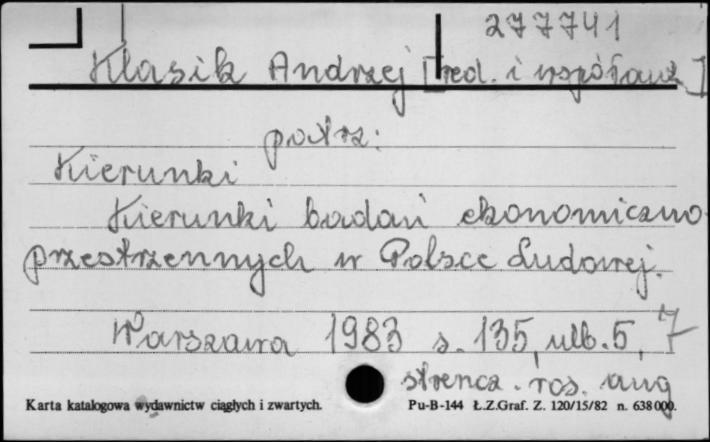 277741
Klasik Andrzej [red. i współaut.]
patrz:
Kierunki
Kierunki badań ekonomiczno-
przestrzennych w Polsce Ludowej.
Warszawa 1983 s. 135, nlb. 5, 7
streszcz. ros. ang
Karta katalogowa wydawnictw ciągłych i zwartych. Pu-B-144 Ł.Z.Graf. Z. 120/15/82 n. 638000.